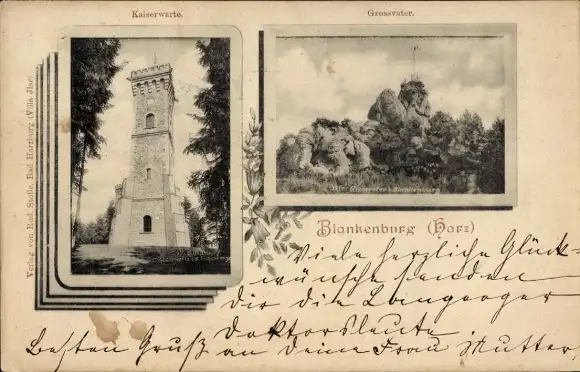 Kaiserwarte.
Grossvater.
Verlag von Rud. Stolle, Bad Harzburg (Villa Ilse)
Grossvater b. Blankenburg
Blankenburg (Harz)
Viele herzliche Glück-
wünsche senden
Dir die
Doktorsleute
Besten Gruß an Deine Frau Mutter